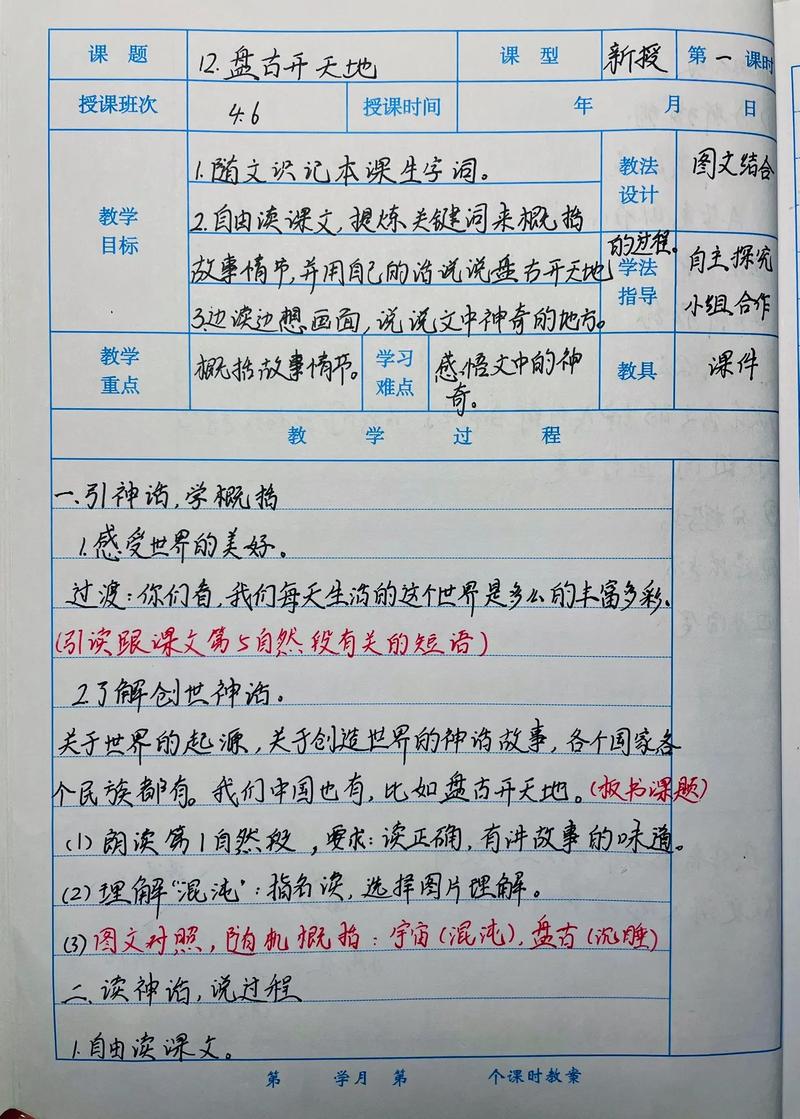 课题 12.盘古开天地 课型 新授 第一课时
授课班次 4.6 授课时间 年 月 日
教学目标
1.随文识记本课生字词。
2.自由读课文,提炼关键词来概括
故事情节,并用自己的话说说盘古开天地
的过程。
3.边读边想画面,说说文中神奇的地方。
教法设计 图文结合
学法指导 自主探究
小组合作
教学重点 概括故事情节。 学习难点 感悟文中的神
奇。 教具 课件
教学过程
一.引神话,学概括
1.感受世界的美好。
过渡:你们看,我们每天生活的这个世界是多么的丰富多彩。
(引读跟课文第5自然段有关的短语)
2.了解创世神话。
关于世界的起源,关于创造世界的神话故事,各个国家各
个民族都有。我们中国也有,比如盘古开天地。(板书课题)
(1)朗读第1自然段,要求:读正确,有讲故事的味道。
(2)理解“混沌”:指名读,选择图片理解。
(3)图文对照,随机概括:宇宙(混沌),盘古(沉睡)
二.读神话,说过程
1.自由读课文。
第 学月 第 个课时教案